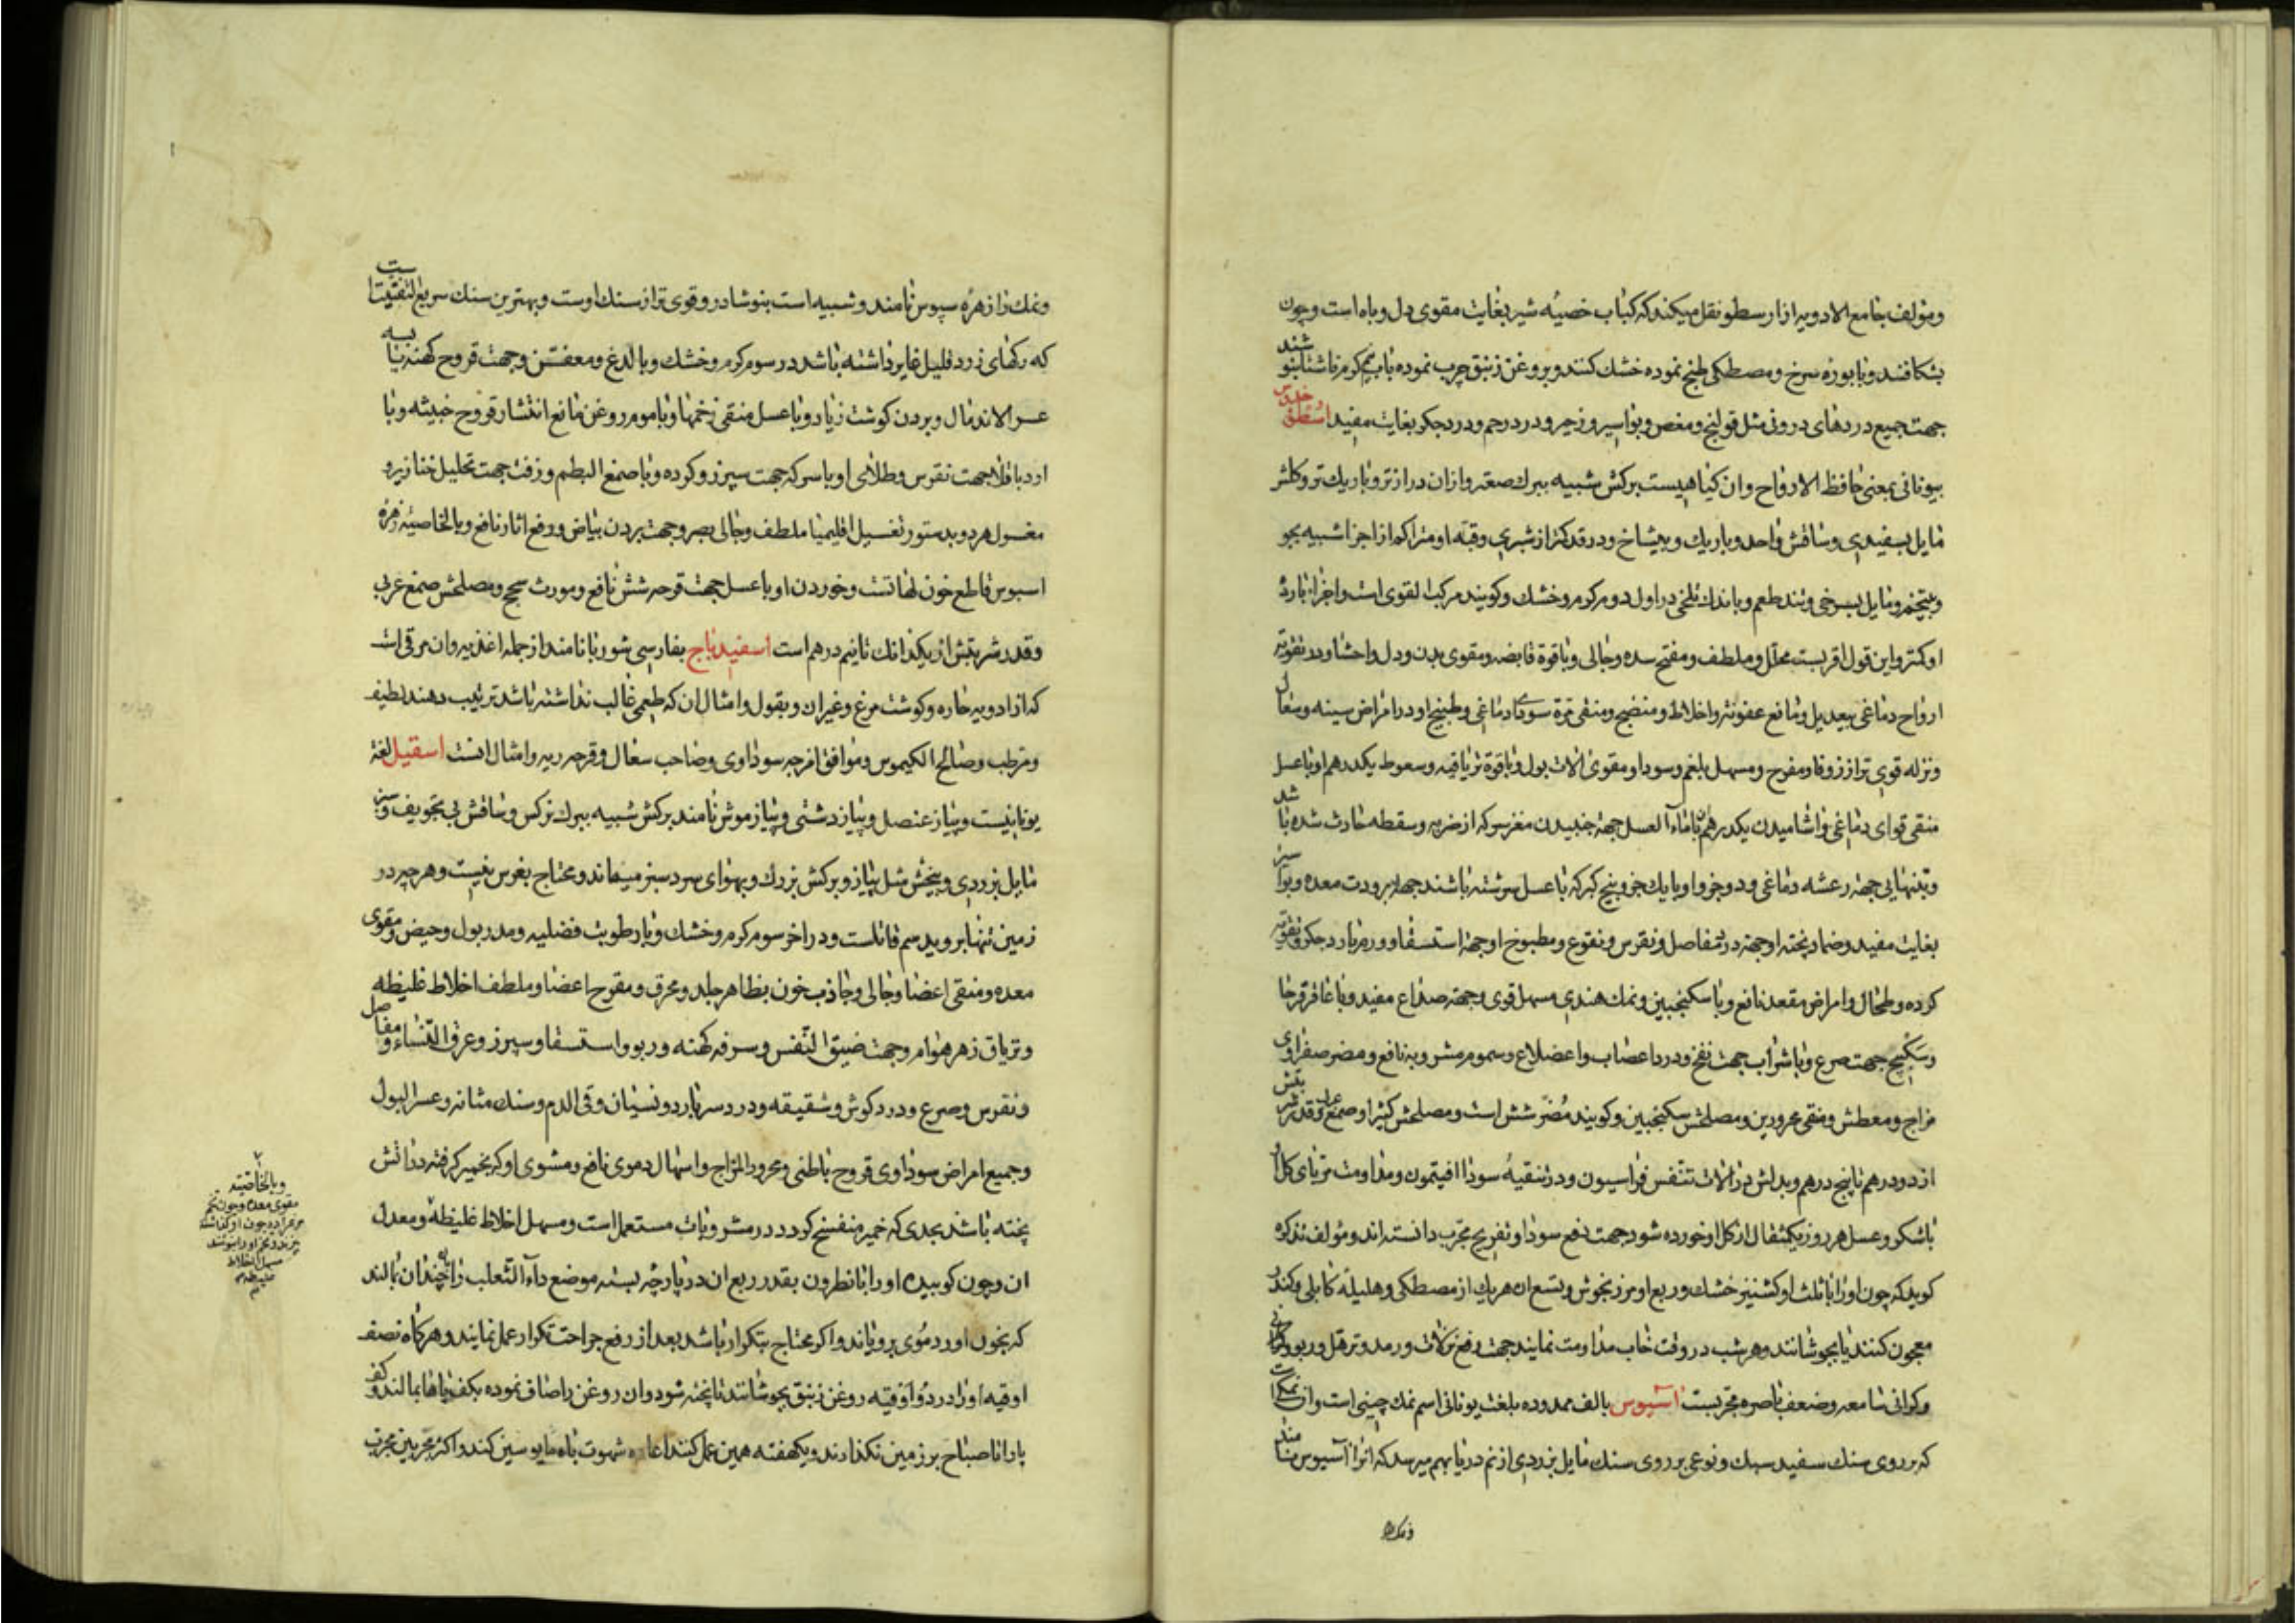 ومؤلف جامع الادویه از ارسطو نقل میکند که کباب خصیه شیر بغایت مقوی دل و باه است و چون
بشکافند و با بوره سرخ و مصطکی طبخ نموده خشک کنند و بروغن زنبق چرب نموده با آب کرم ناشتا بنوشند
جهت جمیع دردهای درونی مثل قولنج و مغص و بواسیر و زحیر و درد رحم و درد جکر بغایت مفید اسطوخودوس
بیونانی بمعنی حافظ الارواح و ان کیاهیست برکش شبیه ببرک صعتر و از ان درازتر و باریک تر و کلش
مایل بسفیدی و ساقش واحد و باریک و بیشاخ و در قد کمتر از شبری و قبه او متراکم از اجزا شبیه بجو
و بیتخم و مایل بسرخی و تند طعم و با اندک تلخی در اول دوم کرم و خشک و کویند مرکب القوی است و اجزا بارد
او کمتر و این قول اقربست محلل و ملطف و مفتح سده و جالی و با قوة قابضه و مقوی بدن و دل و احشا و در تقویة
ارواح دماغی بیعدیل و مانع عفونة و اخلاط و منضج و منقی مرة سودا دماغی و طبیخ او در امراض سینه و سعال
و نزله قوی تر از زوفا و مفرح و مسهل بلغم و سودا و مقوی الات بول و با قوة تریاقیه و سعوط یکدرهم او با عسل
منقی قوای دماغی و اشامیدن یکدرهم با ماء العسل جهة جنبیدن مغز سر که از ضربه و سقطه حادث شده باشد
و بتنهایی جهة رعشه دماغی و دو جزو او با یک جزو بیخ کبر که با عسل سرشته باشند جهة برودت معده و بواسیر
بغایت مفید و ضماد پخته او جهة درد مفاصل و نقرس و نقوع و مطبوخ او جهة استسقا و ورم بارد جکر و تقویة
کرده و طحال و امراض مقعد نافع و با سکنجبین و نمک هندی مسهل قوی و جهة صداع مفید و با عاقرقرحا
و سکبینج جهت صرع و با شراب جهت نفخ و درد اعصاب و اضلاع و سموم مشروبه نافع و مضر صفراوی
مزاج و معطش و مقی محرورین و مصلحش سکنجبین و کویند مضر شش است و مصلحش کثیرا و صمغ عربی و قدر شربتش
از دو درهم تا پنج درهم و بدلش در الات تنفس فراسیون و در تنقیه سودا افتیمون و مداومت مربای کل ان
با شکر و عسل هر روز یکمثقال از کل او خورده شود جهت دفع سودا و تفریح مجرب دانسته اند و مؤلف تذکره
کوید که چون او را با ثلث او کشنیز خشک و ربع او مرزنجوش و تسع ان هر یک از مصطکی و هلیله کابلی و کندر
معجون کنند یا بجوشانند و هر شب در وقت خواب مداومت نمایند جهت رفع نزلات و رمد و ترهل و ربو
و کرانی سامعه و ضعف باصره مجربست آسیوس بالف ممدوده بلغت یونانی اسم نمک چینی است و ان نمکی است
که بر روی سنک سفید سبک و نوعی بر روی سنک مایل بزردی از نم دریا بهم میرسد که انرا آسیوس مینامند
و نمک را زهره سیوس نامند و شبیه است بنوشادر و قوی تر از سنک اوست و بهترین سنک سریع التفتت است
که رکهای زرد قلیل غایر داشته باشد در سوم کرم و خشک و با لدغ و معفن و جهت قروح کهنه
عسر الاندمال و بردن کوشت زیاد و با عسل منقی زخمها و با موم روغن مانع انتشار قروح خبیثه و با
ارد باقلا جهت نقرس و طلای او با سرکه جهت سپرز و کرده و با صمغ البطم و زفت جهت تحلیل خنازیر و
مغسول هر دو بدستور تغسیل اقلیمیا ملطف و جالی بصر و جهت بردن بیاض و رفع اثار نافع و بالخاصیه زهره
اسیوس قاطع خون لهاتست و خوردن او با عسل جهت قرحه شش نافع و مورث سحج و مصلحش صمغ عربی
و قدر شربتش از یکدانک تا نیم درهم است اسفیدباج بفارسی شوربا نامند از جمله اغذیه و ان مرقی است
که از ادویه حاره و کوشت مرغ و غیر ان و بقول و امثال ان که طعمی غالب نداشته باشد ترتیب دهند لطیف
و مرطب و صالح الکیموس و موافق امزجه سوداوی و صاحب سعال و قرحه ریه و امثال انست اسقیل لغة
یونانیست و پیاز عنصل و پیاز دشتی و پیاز موش نامند برکش شبیه ببرک نرکس و ساقش بی تجویف و سبز
مایل بزردی و بیخش مثل پیاز و برکش بزرک و بهوای سرد سبز میماند و محتاج بغرس نیست و هر چه در
زمین تنها بروید سم قاتلست و در اخر سوم کرم و خشک و با رطوبت فضلیه و مدر بول و حیض و مقوی
معده و منقی اعضا و جالی و جاذب خون بظاهر جلد و محرق و مقرح اعضا و ملطف اخلاط غلیظه
و تریاق زهر هوام و جهت ضیق النفس و سرفه کهنه و ربو و استسقا و سپرز و عرق النساء و مفاصل
و نقرس و صرع و درد کوش و شقیقه و درد سر بارد و نسیان و قی الدم و سنک مثانه و عسر البول
و جمیع امراض سوداوی و قروح باطنی و محرور المزاج و اسهال دموی نافع و مشوی او که بخمیر کرفته در اتش
پخته باشند بحدی که خمیر منفسخ کردد در مشروبات مستعمل است و مسهل اخلاط غلیظه و معدل
ان و چون کوبیده او را با نطرون بقدر ربع ان در پارچه بسته موضع داء الثعلب را چندان بمالند
که بخون اورد موی برویاند و اکر محتاج بتکرار باشد بعد از رفع جراحت تکرار عمل نمایند و هرکاه نصف
اوقیه او را در دو اوقیه روغن زنبق بجوشانند تا پخته شود و ان روغن را صاف نموده بکف پاها بمالند و کف
پا را تا صباح بر زمین نکذارند و یکهفته همین عمل کنند اعاده شهوت باه مایوسین کند و اکثر مجربین مجرب
وبالخاصیته
مقوی معده و چون تخم